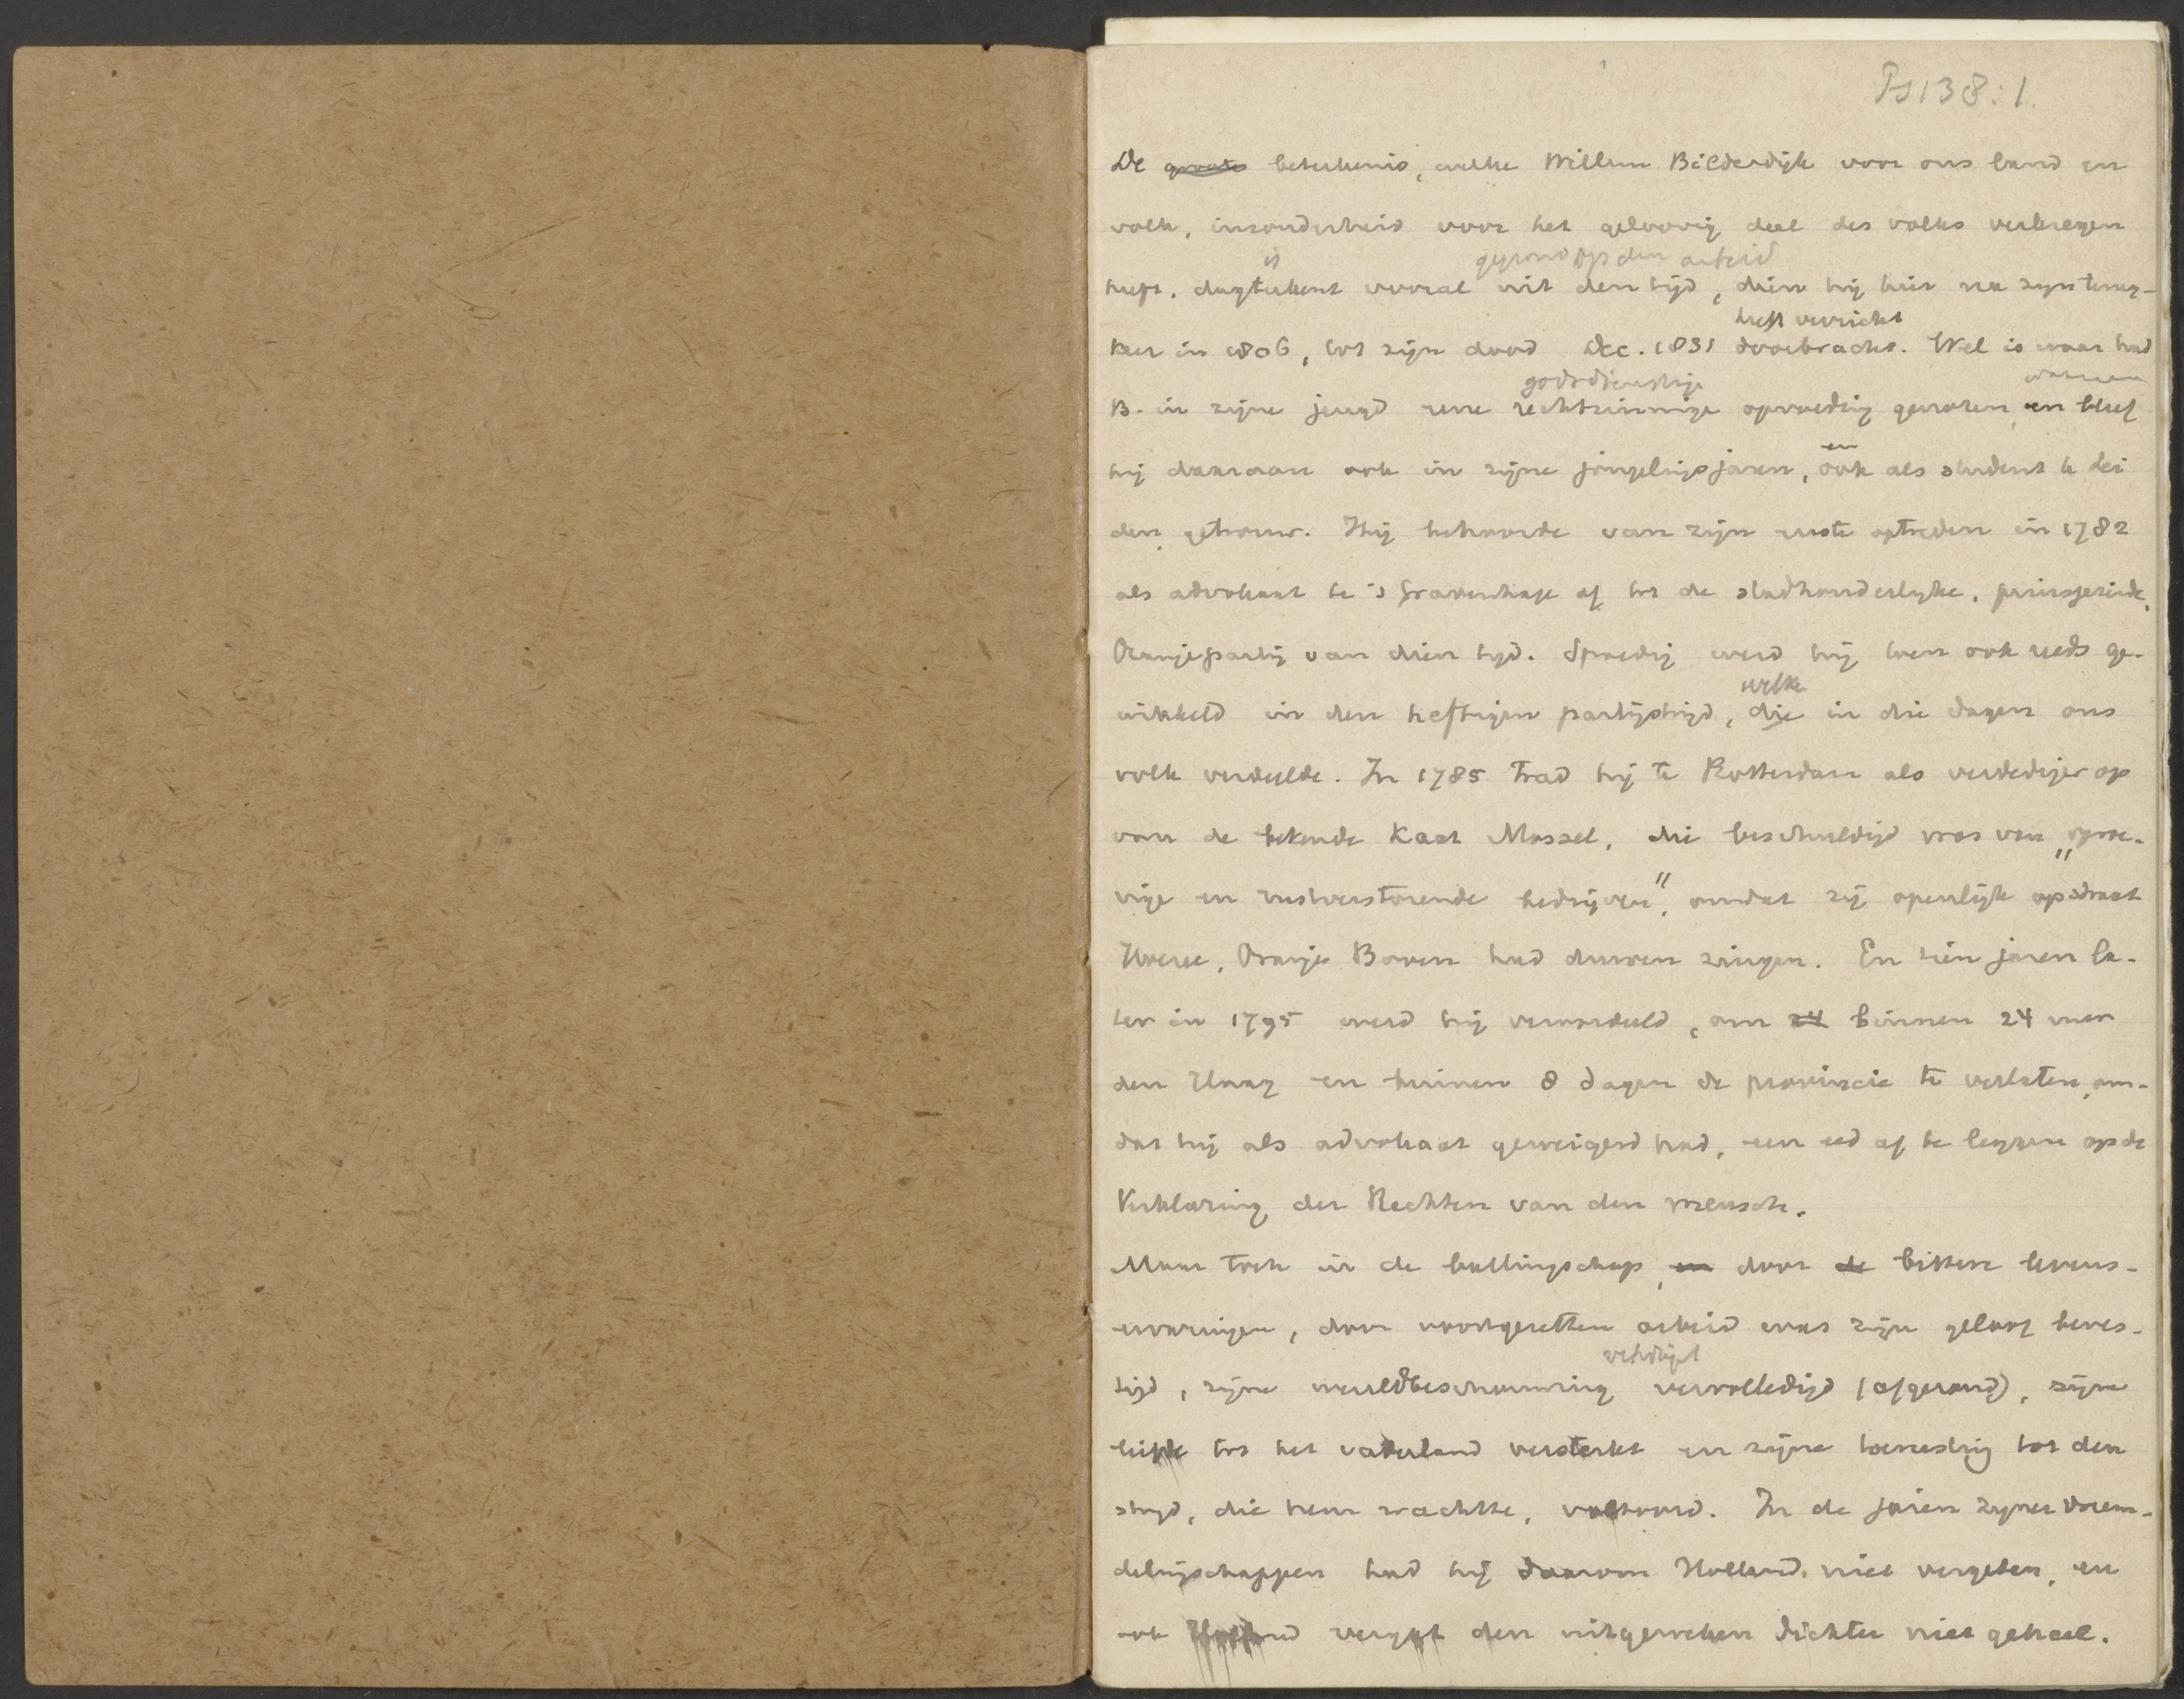 Ps 138:1.
De groote beteekenis, welke Willem Bilderdijk voor ons land en
volk, inzonderheid voor het geloovig deel des volks verkregen
is gegrond op den arbeid
heeft, dagteekent vooral uit den tijd, dien hij hier na zijn terug-
heeft verricht
keer in 1806, tot zijn dood Dec. 1831 doorbracht. Wel is waar had
godsdienstige
B. in zijne jeugd eene rechtzinnige opvoeding genoten, en bleef
en
hij daaraan ook in zijne jongelingsjaren, ook als student te Lei
den getrouw. Hij behoorde van zijn eerste optreden in 1782
als advokaat te 's Gravenhage af tot de stadhouderlijke, prinsgezinde,
Oranjepartij van dien tijd. Spoedig werd hij toen ook reeds ge-
welke
wikkeld in den heftigen partijstrijd, die in die dagen ons
volk verdeelde. In 1785 trad hij te Rotterdam als verdediger op
van de bekende Kaat Mossel, die beschuldigd was van "oproe-
rige en rustverstorende bedrijven", omdat zij openlijk op straat
Hoezee, Oranje Boven had durven zingen. En tien jaren la-
ter in 1795 werd hij veroordeeld, om 24 binnen 24 uren
den Haag en binnen 8 dagen de provincie te verlaten, om-
dat hij als advokaat geweigerd had, een eed af te leggen op de
Verklaring der Rechten van den mensch.
Maar toch in de ballingschap, en door de bittere levens-
ervaringen, door voortgezetten arbeid was zijn geloof beves-
tigd, zijne wereldbeschouwing vervolledigd (afgerond), zijne
liefde tot het vaderland versterkt en zijne toerusting tot den
strijd, die hem wachtte, voltooid. In de jaren zijner vreem-
delingschappen had hij daarom Holland niet vergeten, en
ook Holland vergat den uitgeweken dichter niet geheel.